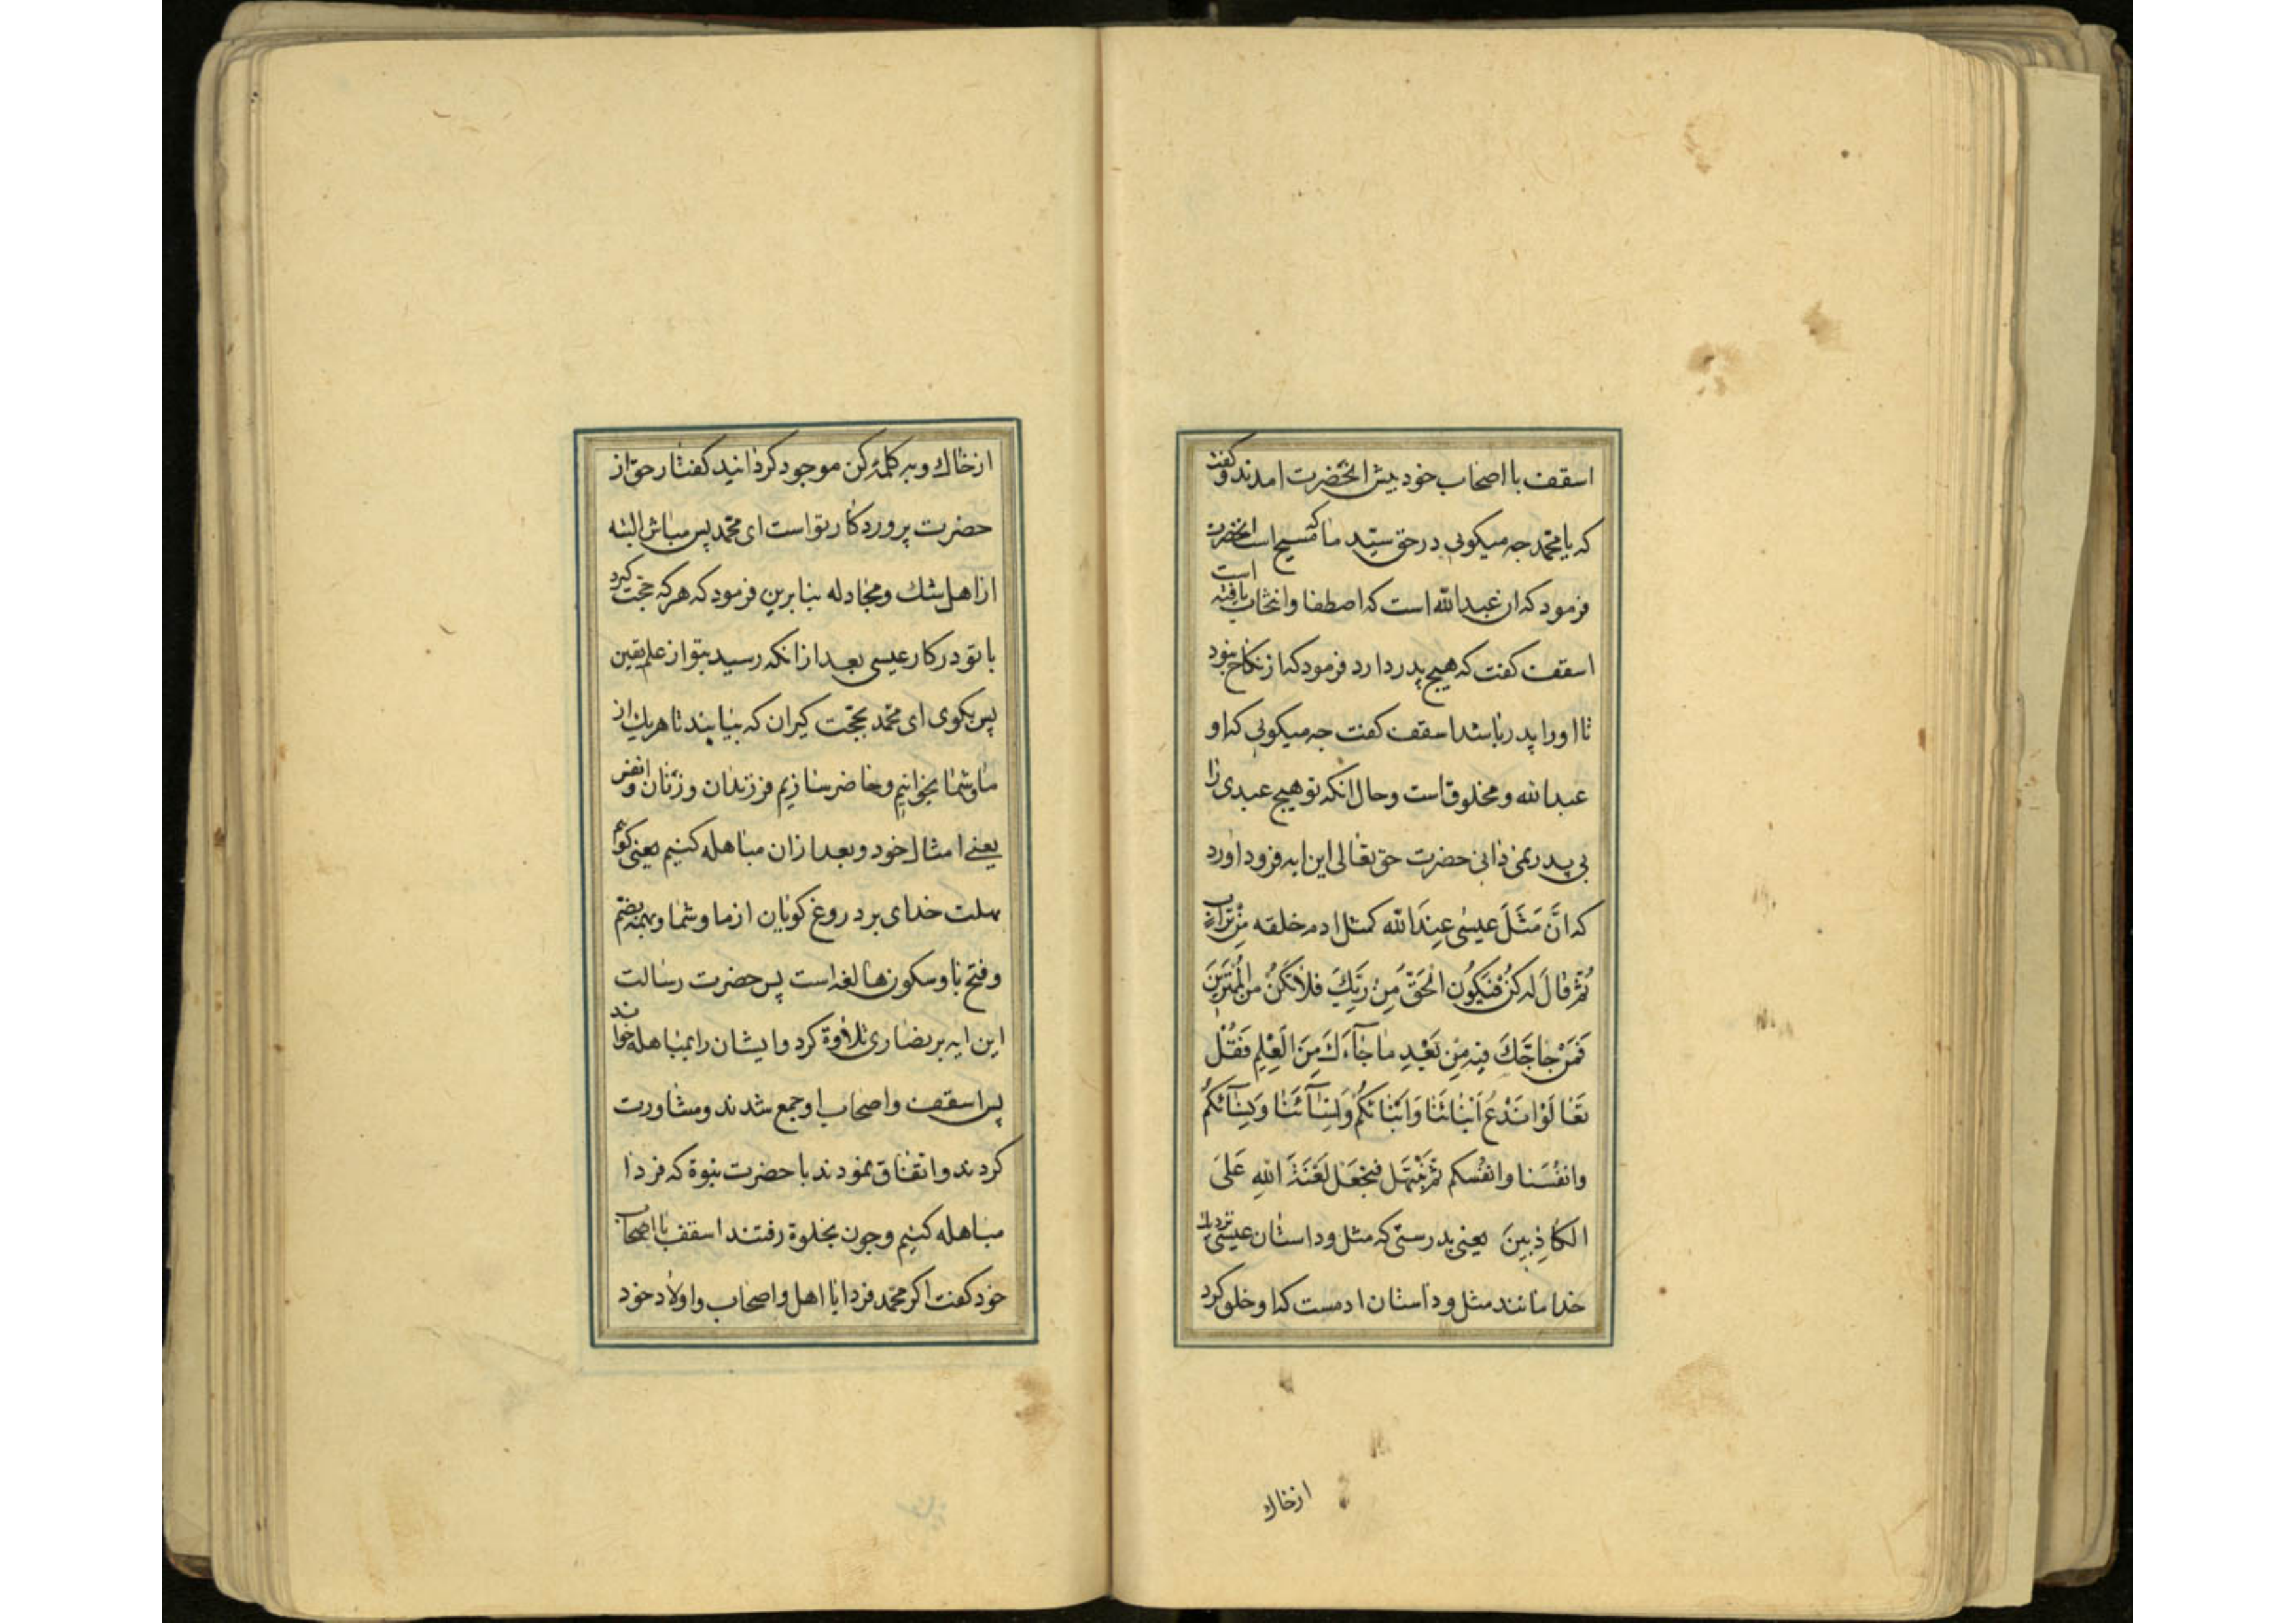 اسقف با اصحاب خود بیش انحضرت امدند و کفت
که یا محمد جه میکویی در حق سید ما که مسیح است انحضرت
فرمود که ان عبدالله است که اصطفا و انتخاب یافته است
اسقف کفت که هیج پدر دارد فرمود که از نکاح نبود
تا او را پدر باشد اسقف کفت جه میکویی که او
عبدالله و مخلوقاست و حال انکه تو هیج عبدی را
بی پدر نمی دانی حضرت حق تعالی این ایه فرود اورد
که انَّ مَثَلَ عیسٰی عِندَ الله کمثل ادم خلقه مِنْ تراب
ثُمَّ قالَ لَه کُنْ فَیَکُون الحَقّ مِنْ رَبِّكَ فَلاٰ تَکُنْ من المُمْتَرینَ
فَمَنْ حٰاجَّكَ فیهِ مِنْ بَعْدِ مٰا جٰآءَكَ مِنَ الْعِلْمِ فَقُلْ
تَعٰالَوْا نَدْعُ اَبْنٰائَنٰا وَاَبْنٰائَکُمْ وَنِسٰآئَنٰا وَنِسٰآئَکُمْ
وانفُسَنا وانفُسکم ثُمَّ نَبْتَهَل فَنَجْعَل لَعْنَةَ اللهِ عَلَی
الکاذِبِینَ یعنی بدرستی که مثل و داستان عیسی نزدیك
خدا مانند مثل و داستان ادمست که او خلق کرد
از خاك
از خاك و به کلمهٔ کن موجود کردانید کفتار حق از
حضرت پروردکار تو است ای محمد پس مباش البته
از اهل شك و مجادله بنابرین فرمود که هر که حجت کیرد
با تو در کار عیسی بعد از انکه رسید بتو از علم یقین
پس بکوی ای محمد بحجت کیران که بیایند تا هریك از
ما و شما بخوانیم و حاضر سازیم فرزندان و زنان و انفس
یعنی امثال خود و بعد ازان مباهله کنیم یعنی کوئیم
بهلت خدای بر دروغ کویان از ما و شما و بهله بضم
و فتح با و سکون ها لغه است پس حضرت رسالت
این ایه بر نصاری تلاوة کرد و ایشان را بمباهله خواند
پس اسقف و اصحاب او جمع شدند و مشاورت
کردند و اتفاق نمودند با حضرت نبوة که فردا
مباهله کنیم و جون بخلوة رفتند اسقف با اصحاب
خود کفت اکر محمد فردا با اهل و اصحاب و اولاد خود